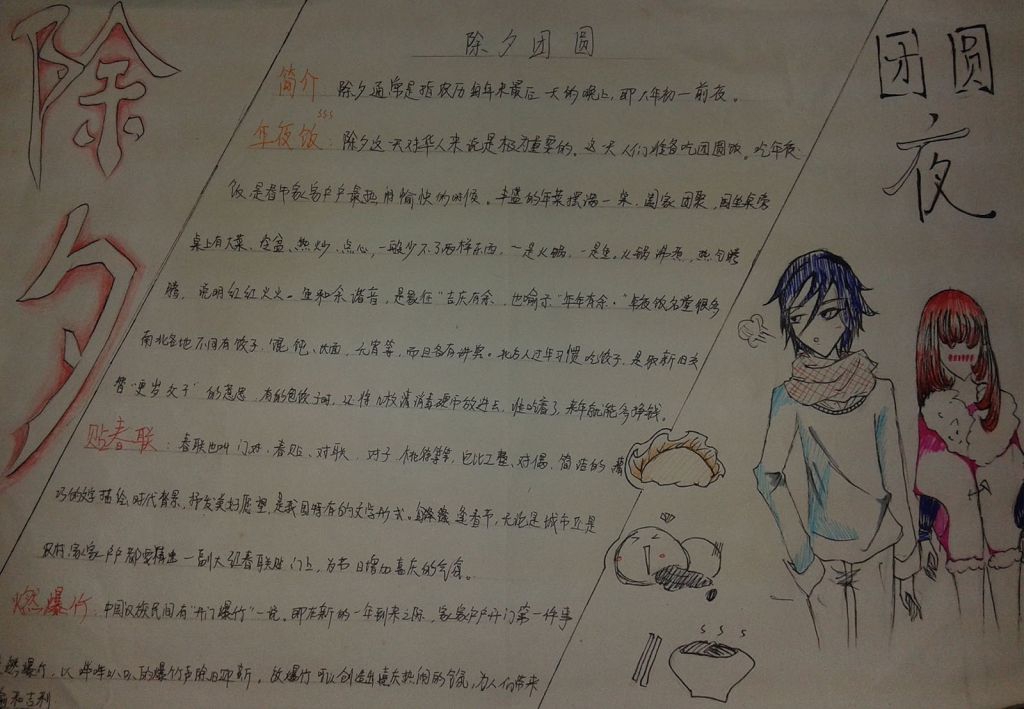 除夕
除夕团圆
团圆
夜
简介：除夕通常是指农历每年末最后一天的晚上，即大年初一前夜。
年夜饭：除夕这一天对华人来说是极为重要的。这一天人们准备吃团圆饭。吃年夜
饭是春节家家户户最热闹愉快的时候。丰盛的年菜摆满一桌，阖家团聚，围坐桌旁
桌上有大菜、冷盆、热炒、点心，一般少不了两样东西，一是火锅，一是鱼。火锅沸煮，热气腾
腾，说明红红火火。鱼和余谐音，是象征"吉庆有余，也喻示"年年有余。"年夜饭名堂很多
南北各地不同有饺子、馄饨、长面、元宵等，而且各有讲究。北方人过年习惯吃饺子，是取新旧交
替"更岁交子"的意思
来年就能多挣钱。
贴春联：春联也叫门对、春贴、对联、对子、桃符等等，它以工整、对偶、简洁的精
巧的文字描绘时代背景，抒发美好愿望，是我国特有的文学形式。每逢春节，无论是城市还是
农村，家家户户都要精选一副大红春联贴门上，为节日增加喜庆的气氛。
燃爆竹：中国民族民间有"开门爆竹"一说。即在新的一年到来之际，家家户户开门第一件事
燃爆竹，以哔哔叭叭的爆竹声除旧迎新。放爆竹可以创造出喜庆热闹的气氛，为人们带来
和吉利